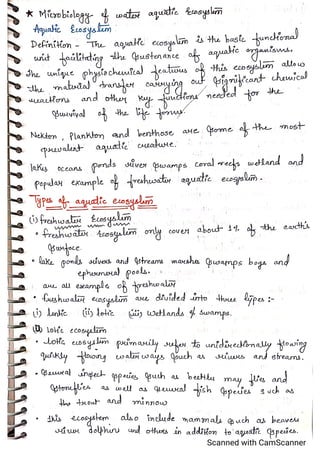 * Microbiology of water aquatic Ecosystem
Aquatic Ecosystem
Definition - The aquatic ecosystem is the basic functional
unit facilitating the sustenance of aquatic organisms.
The unique physiochemical features of this ecosystem allow
the material transfer carrying out significant chemical
reactions and other key functions needed for the
survival of the life forms.
Nekton, Plankton and benthose are some of the most
prevalent aquatic creature.
lakes oceans ponds river swamps coral reefs wetland and
popular example of freshwater aquatic ecosystem.
Types of aquatic ecosystem
(i) freshwater Ecosystem
• freshwater Ecosystem only cover about 1% of the earth's
surface.
• lake ponds rivers and streams marshes swamps bogs and
ephemeral pools.
are all example of freshwater
• freshwater ecosystem are divided into three types :-
(i) lentic (ii) lotic (iii) Wetlands & swamps.
(i) lotic ecosystem
• Lotic ecosystem primarily refer to unidirectionally flowing
quickly flowing water ways such as rivers and streams.
• Several insect species such as beetles may flies and
stoneflies as well as several fish species such as
the trout and minnow
• this ecosystem also include mammals such as beavers
river dolphins and others in addition to aquatic species.
Scanned with CamScanner